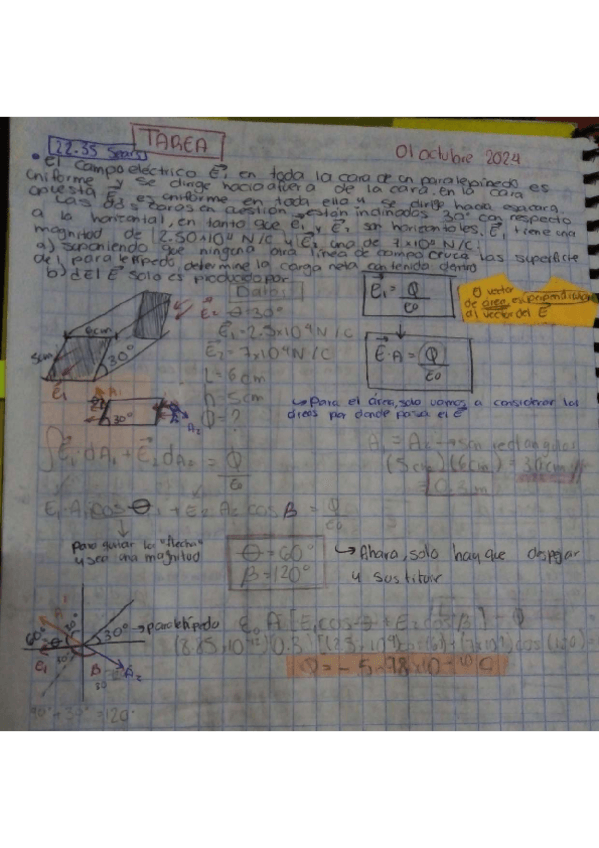 22.35 Sears TAREA 01 octubre 2024
• El campo eléctrico E₁ en toda la cara de un paralelepípedo es
uniforme y se dirige hacia afuera de la cara. En la cara
opuesta E₂ es uniforme en toda ella y se dirige hacia esa cara
Las dos caras en cuestión están inclinadas 30° con respecto
a la horizontal, en tanto que E₁ y E₂ son horizontales. E₁ tiene una
magnitud de 2.50x10⁴ N/C y E₂ una de 7x10⁴ N/C
a) suponiendo que ninguna otra línea de campo cruza las superficie
del paralelepípedo, determine la carga neta contenida dentro
b) ¿El E solo es producido por
Datos:
E₂ θ = 30°
E₁ = 2.5x10⁴ N/C
E₂ = 7x10⁴ N/C
L = 6cm
h = 5cm
Q = ?
6cm
5cm
30°
E₁
E₁ = Q/ε₀
E·A = Q/ε₀
El vector
de área es perpendicular
al vector del E
A₁
30°
A₂
↳ Para el área, solo vamos a considerar las
áreas por donde pasa el E
A₁ = A₂ → son rectangulares
(5cm)(6cm) = 30cm
= 0.3m
∫E₁·dA₁ + E₂ dA₂ = Q/ε₀
E₁·A₁cosθ + E₂ A₂ cos β = Q/ε₀
para quitar la "flecha"
y sea una magnitud
θ = 60°
β = 120°
↳ Ahora, solo hay que despejar
y sustituir
60°
30°
30° → paralelepípedo
E₁
β
A₂
ε₀ A [E₁cosθ + E₂cosβ] = Q
Q = -5.78x10⁻¹⁰ C
90° + 30° = 120°